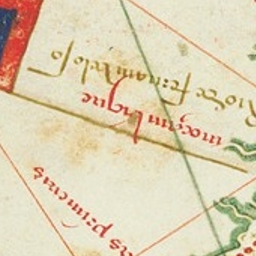 Rio de fernam veloso
moçambique
as primeiras